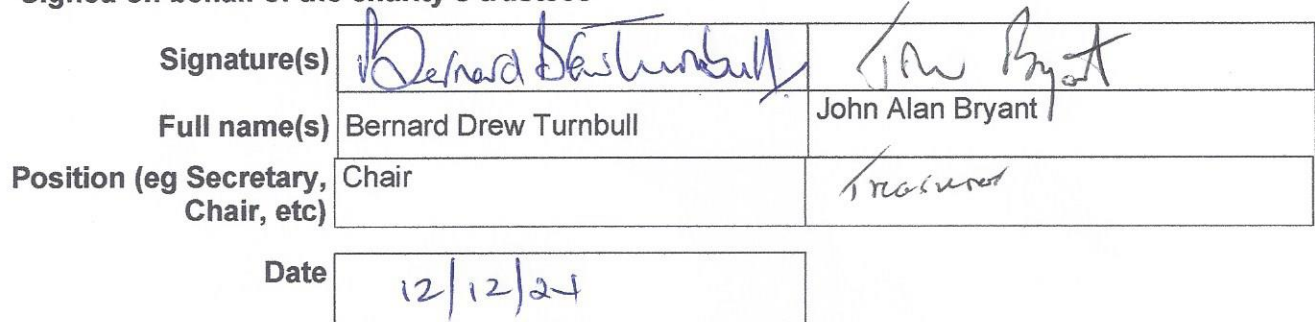 Signed on behalf of the charity's trustees
Signature(s) Bernard Drew Turnbull John Bryant
Full name(s) Bernard Drew Turnbull John Alan Bryant
Position (eg Secretary, Chair Treasurer
Chair, etc)
Date 12/12/24